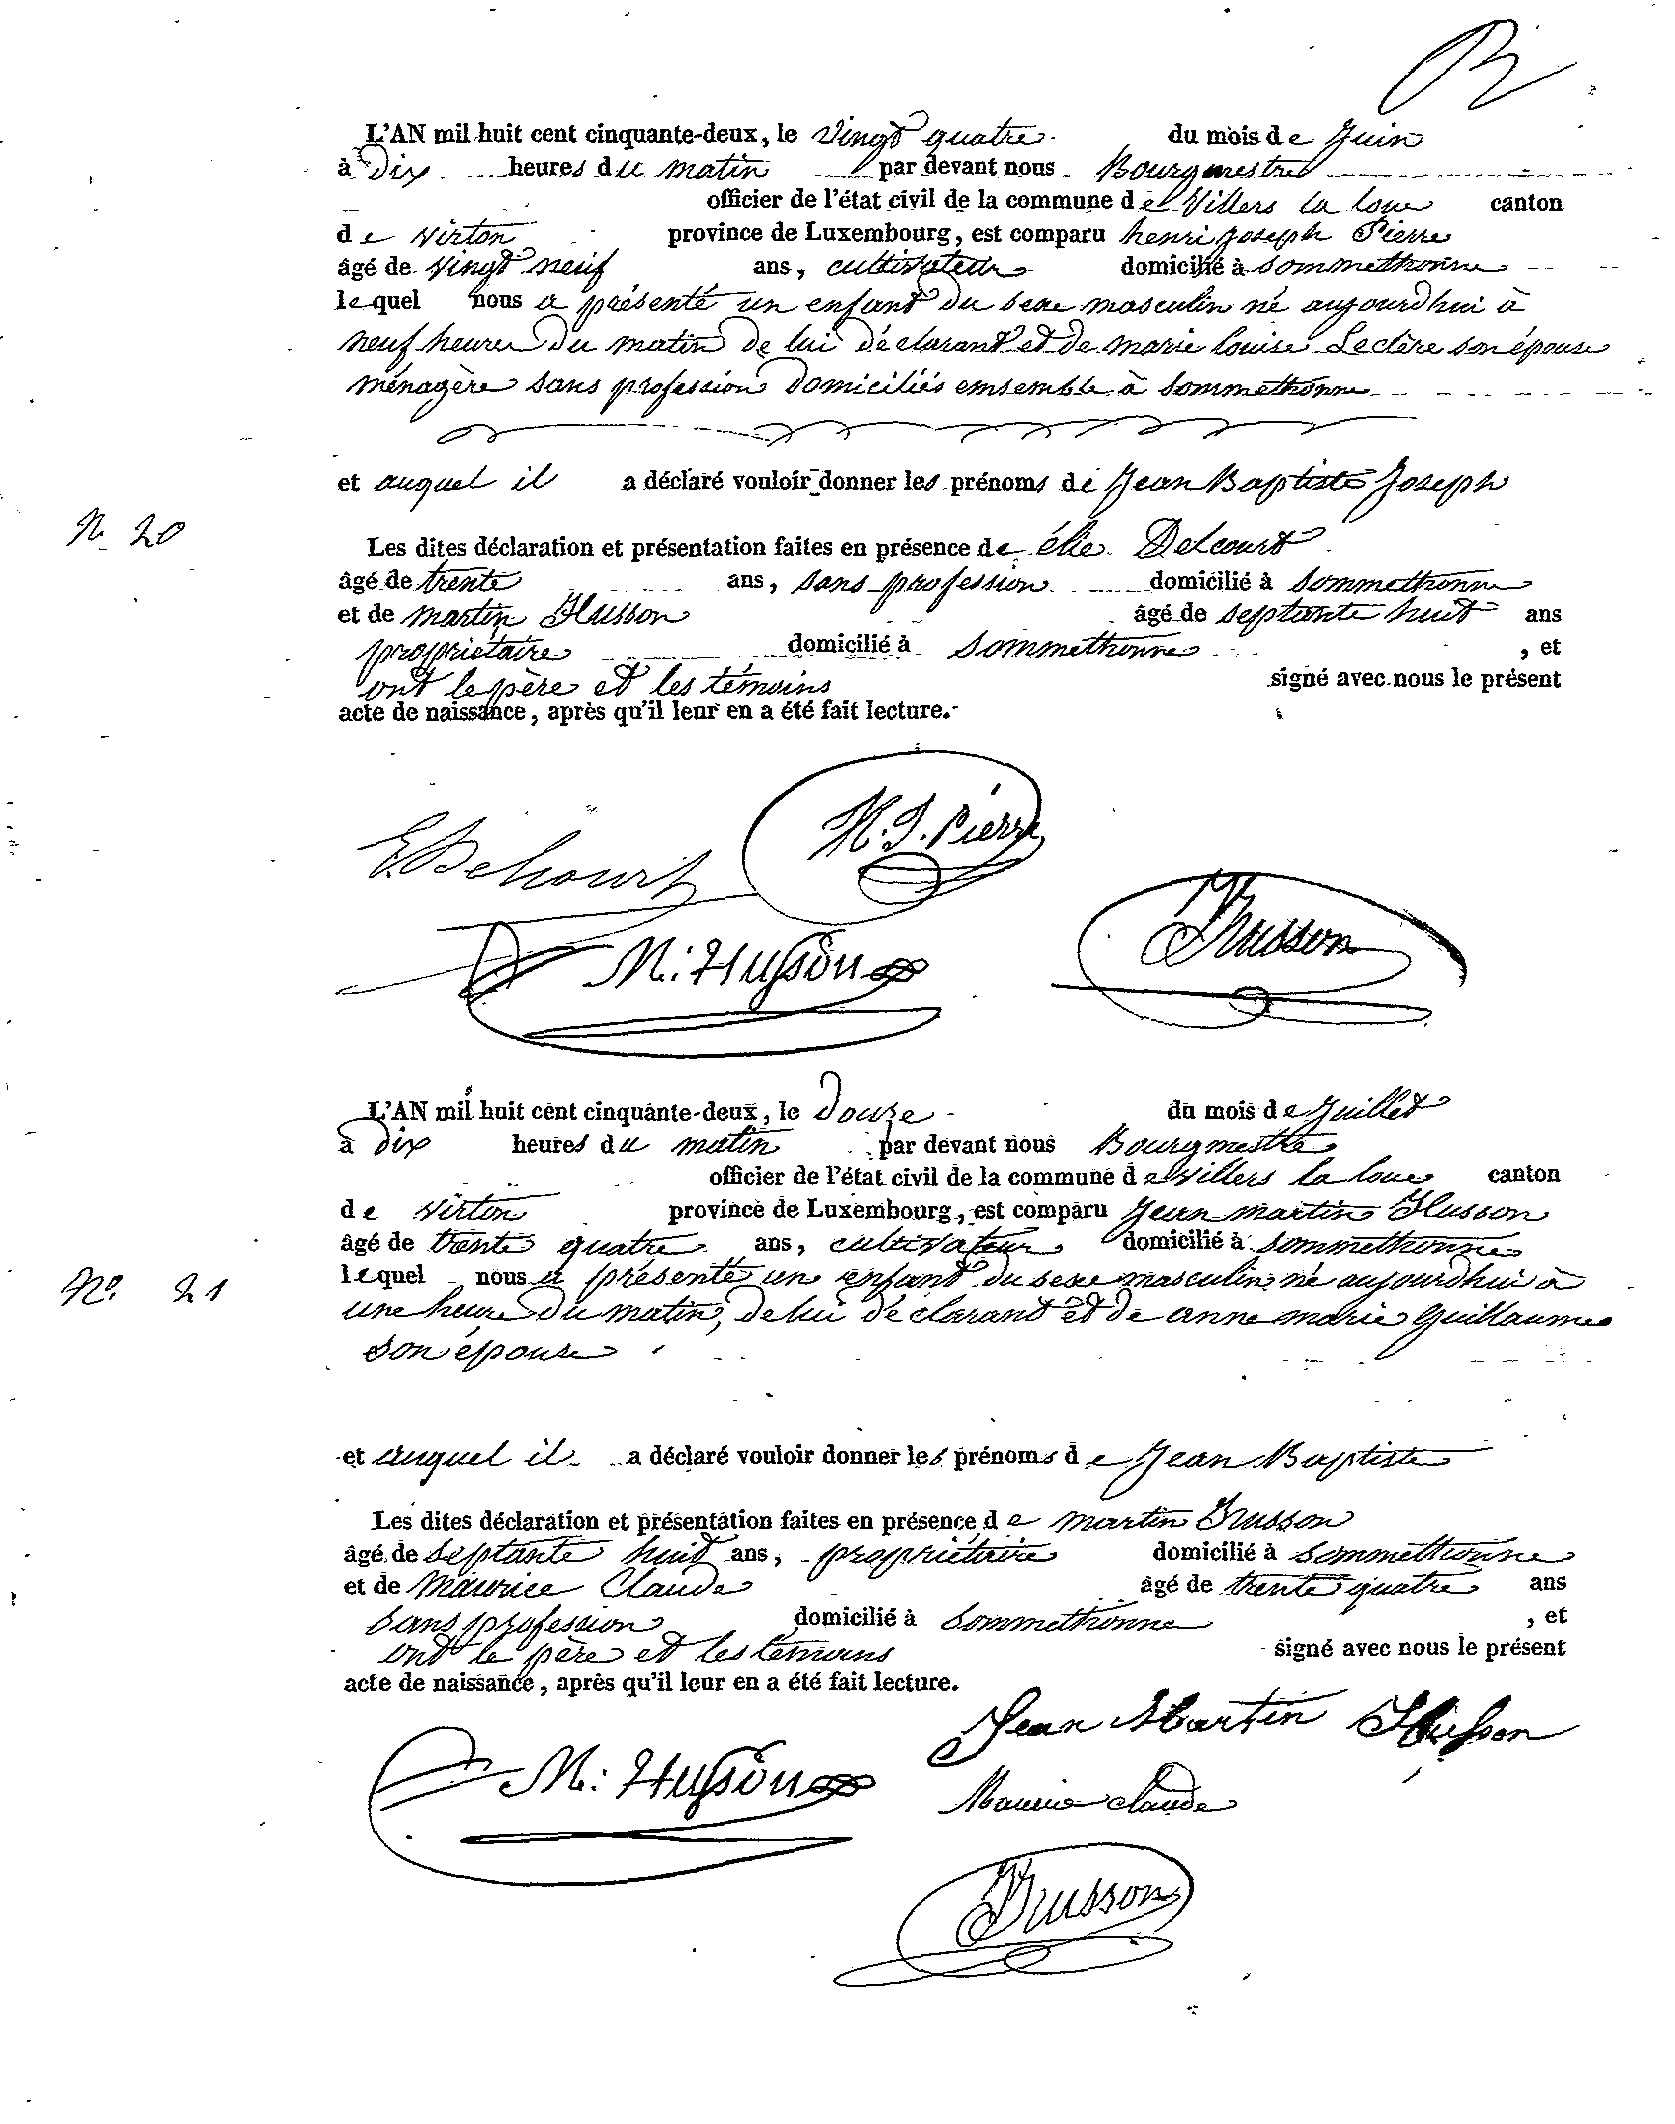 L'AN mil huit cent cinquante-deux, le vingt quatre du mois de Juin
à Dix heures du matin par devant nous Bourgmestre
officier de l'état civil de la commune de Villers la loue canton
de Virton province de Luxembourg, est comparu henri joseph Pierre
âgé de vingt neuf ans, cultivateur domicilié à Sommethonne
lequel nous a présenté un enfant du sexe masculin né aujourdhui à
neuf heures du matin de lui déclarant et de marie louise Leclère son épouse
ménagère sans profession domiciliés emsemble à Sommethonne
et auquel il a déclaré vouloir donner les prénoms de Jean Baptiste Joseph
N 20
Les dites déclaration et présentation faites en présence de élie Delcourt
âgé de trente ans, sans profession domicilié à Sommethonne
et de martin Husson âgé de septante huit ans
propriétaire domicilié à Sommethonne, et
ont le père et les témoins signé avec nous le présent
acte de naissance, après qu'il leur en a été fait lecture.
H. J. Pierre
E. Delcourt
M: Husson
Husson
L'AN mil huit cent cinquante-deux, le douze du mois de Juillet
à Dix heures du matin par devant nous Bourgmestre
officier de l'état civil de la commune de Villers la loue canton
de Virton province de Luxembourg, est comparu Jean martin Husson
âgé de trente quatre ans, cultivateur domicilié à Sommethonne
N° 21
lequel nous a présenté un enfant du sexe masculin né aujourdhui à
une heure du matin, de lui déclarant et de anne marie Guillaume
son épouse
et auquel il a déclaré vouloir donner les prénoms de Jean Baptiste
Les dites déclaration et présentation faites en présence de martin Husson
âgé de septante huit ans, propriétaire domicilié à Sommethonne
et de maurice Claude âgé de trente quatre ans
sans profession domicilié à Sommethonne, et
ont le père et les témoins signé avec nous le présent
acte de naissance, après qu'il leur en a été fait lecture.
Jean Martin Husson
M: Husson
Maurice claude
Husson